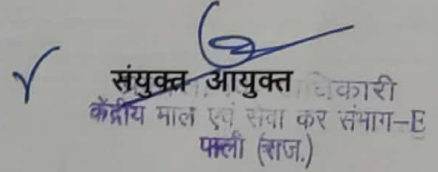 संयुक्त आयुक्त
धिकारी
केंद्रीय माल एवं सेवा कर संभाग-E
पाली (राज.)